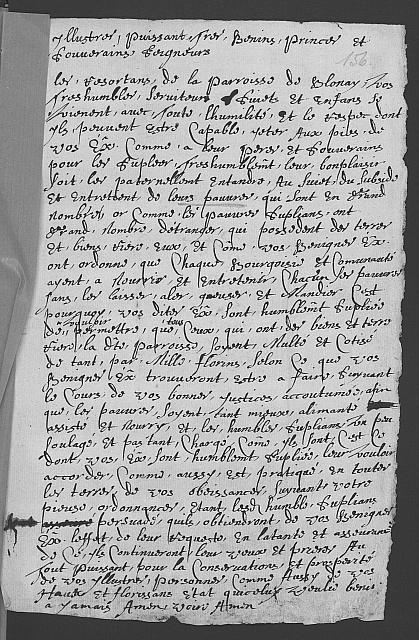 Illustres, Puissant, tres Benins, Princes et
Souverains Seigneurs
156
les Resortans, de la Parroisse de Blonay, Vos
treshumbles, serviteurs, Sujets et Enfans se
vienent, avec, toute, l'humilité, et le respec dont
ils, peuvent estre Capable, jeter Aux pieds, de
vos Ex. Comme, a leur Peres, et Souverains
pour les supleer, treshumblement, leur, bonplaisir
soit, les paternellent Entandre, Au Sujet, du Subside
et Entretient de leurs pauvres, qui sont en Grand
nombres, or Comme les pauvres Suplians, ont
Grand, nombre, detranger, qui possedent des terres
et biens, riere, Eux, et Come, vos Benignes Ex.
ont, ordonne, que Chaque, Bourgoisie et Comunauté
ayent, a Nourrir et Entretenir, Chacun ses pauvres
sans, les laisser, aler, queuser, et Mandier C'est
pourquoy, vos dites Ex. sont, humblemt Supliée
de vouloir permettre, que tous Ceux, qui, ont, des biens et terre
riere, la dte Parroisse, soyent, Multé et Cotisé
de tant, par Mille florins, selon Ce que vos
Benignes Ex. trouveront, estre a faire, suyvant
le Cours, de vos bonnes, justices, accoutumée, afin
que, les pauvres, soyent, tant mieux, alimanté
assisté et nourry, et les, humbles suplians, un peu
soulagé, et pas tant, Chargé, Come, ils, sont, C'est Ce
dont, vos Ex. sont, humblemt Supliée, leur, vouloir
accorder, Comme, aussy, est, pratiqué, en toutes
les terres, de vos obeissances, suyvant, votre
pieuse, ordonnances, Etant, lesd. humble, suplians
persuadé, quils, obtiendront, de vos Benignes
Ex. l'effet, de leur Requeste, en latante et asseurance
de Ce, ils Continueront, leur veux, et prieres Au
tout Puissant, pour la Conservations, et prosperité
de vos Illustres, Personnes, Comme Aussy de vos
Hauts et florissans Etat, que Dieu veulie benir
a Jamais Amen, voire Amen